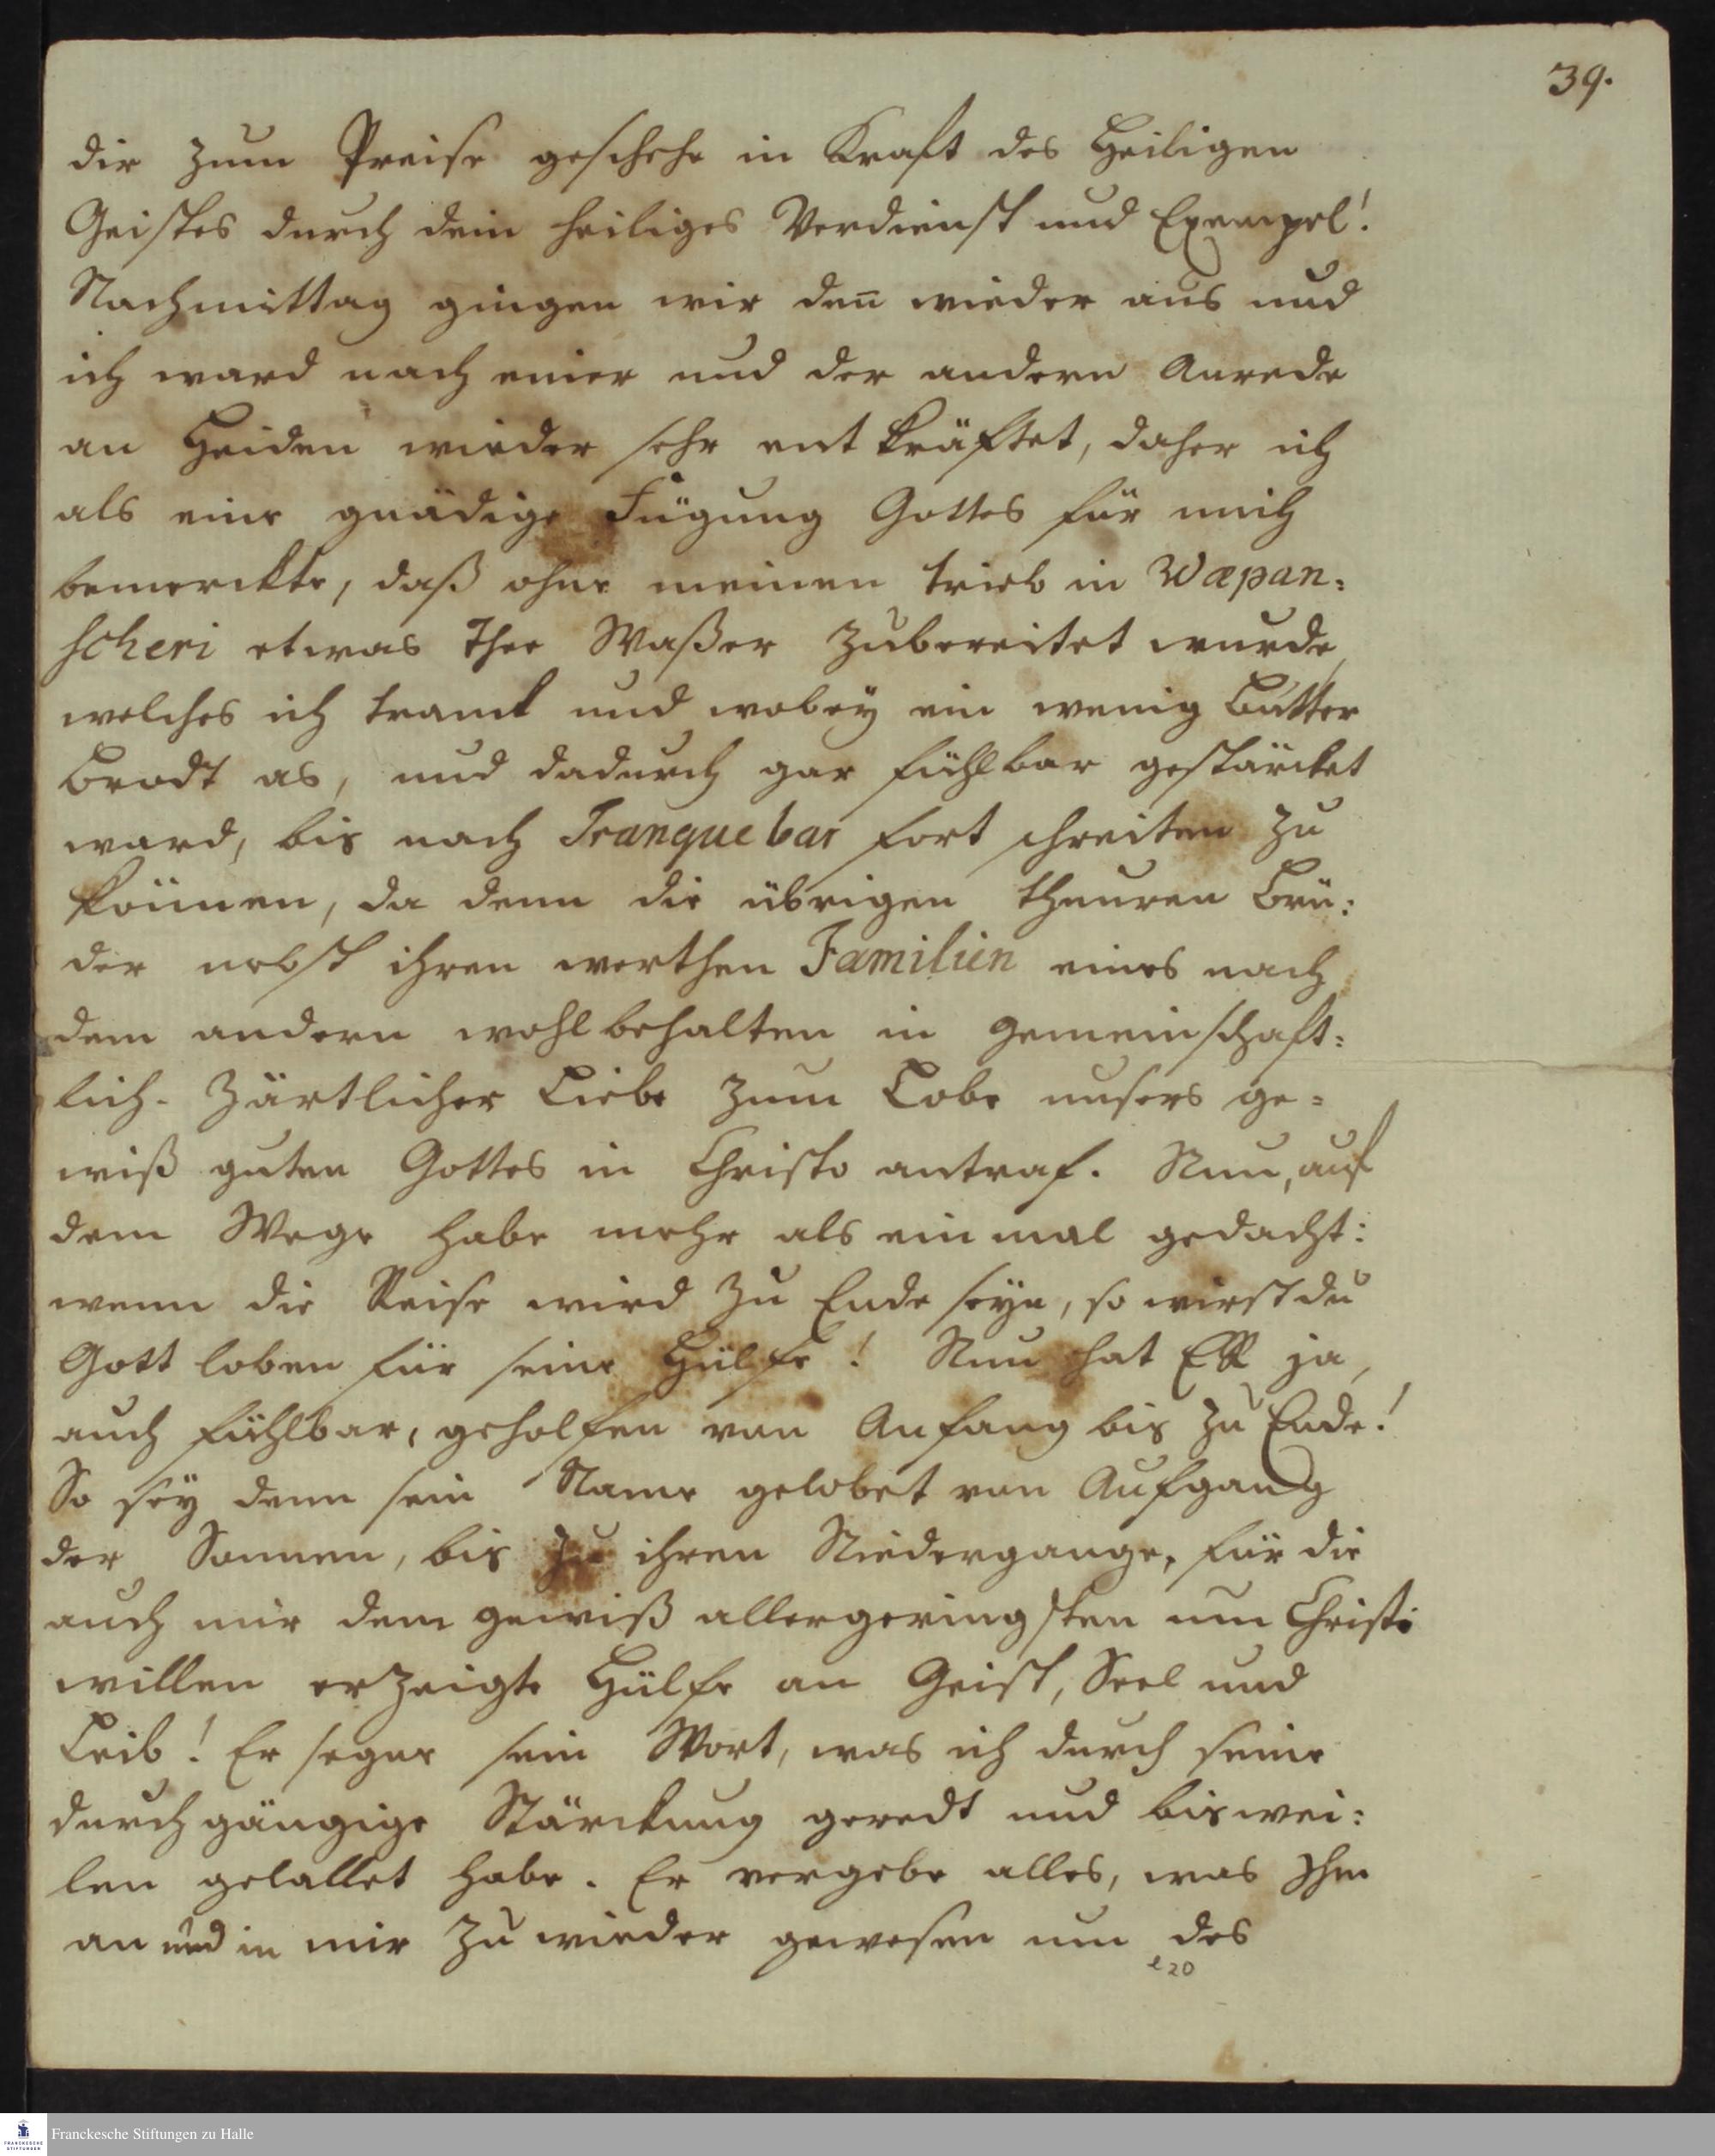 39.
dir zum Preise geschehe in Kraft des Heiligen
Geistes durch dein heiliges Verdienst und Exempel!
Nachmittag gingen wir den̄ wieder aus und
ich ward nach einer und der andern Anrede
an Heiden wieder sehr entkräftet, daher ich
als eine gnädige Fügung Gottes für mich
bemerckte, daß ohne meinen trieb in Wæpan:
scheri etwas Thee Waßer zubereitet wurde,
welches ich tranck und wobey ein wenig Butter
Brodt as, und dadurch gar fühlbar gestärcket
ward, bis nach Tranquebar fort schreiten zu
können, da denn die übrigen theuren Brü:
der nebst ihren werthen Familien eines nach
dem andern wohlbehalten in gemeinschaft:
lich- zärtlicher Liebe zum Lobe unsers ge=
wiß guten Gottes in Christo antraf. Nun, auf
dem Wege habe mehr als ein mal gedacht:
wenn die Reise wird zu Ende seyn, so wirst du
Gott loben für seine Hülfe! Nun hat ER ja,
auch fühlbar, geholfen von Anfang bis zu Ende!
So sey denn sein Name gelobet von Aufgang
der Sonnen, bis zu ihren Niedergange, für die
auch mir dem gewiß allergeringsten um Christi
willen erzeigte Hülfe an Geist, Seel und
Leib! Er segne sein Wort, was ich durch seine
durchgängige Stärckung geredt und biswei:
len gelallet habe. Er vergebe alles, was Ihm
an und in mir zu wieder gewesen um des
e20
Franckesche Stiftungen zu Halle